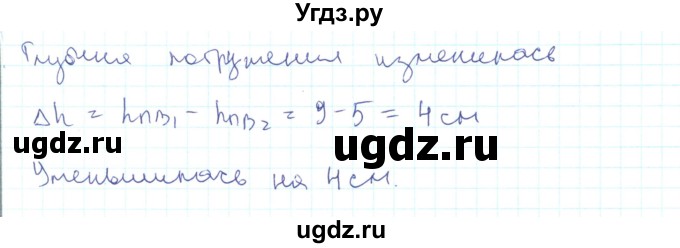 Угдз.ру
Глубина погружения изменилась
Δh = hпв₁ - hпв₂ = 9 - 5 = 4 см
udgz.ru
udgz.ru
Уменьшилась на 4 см.
udgz.ru
udgz.ru